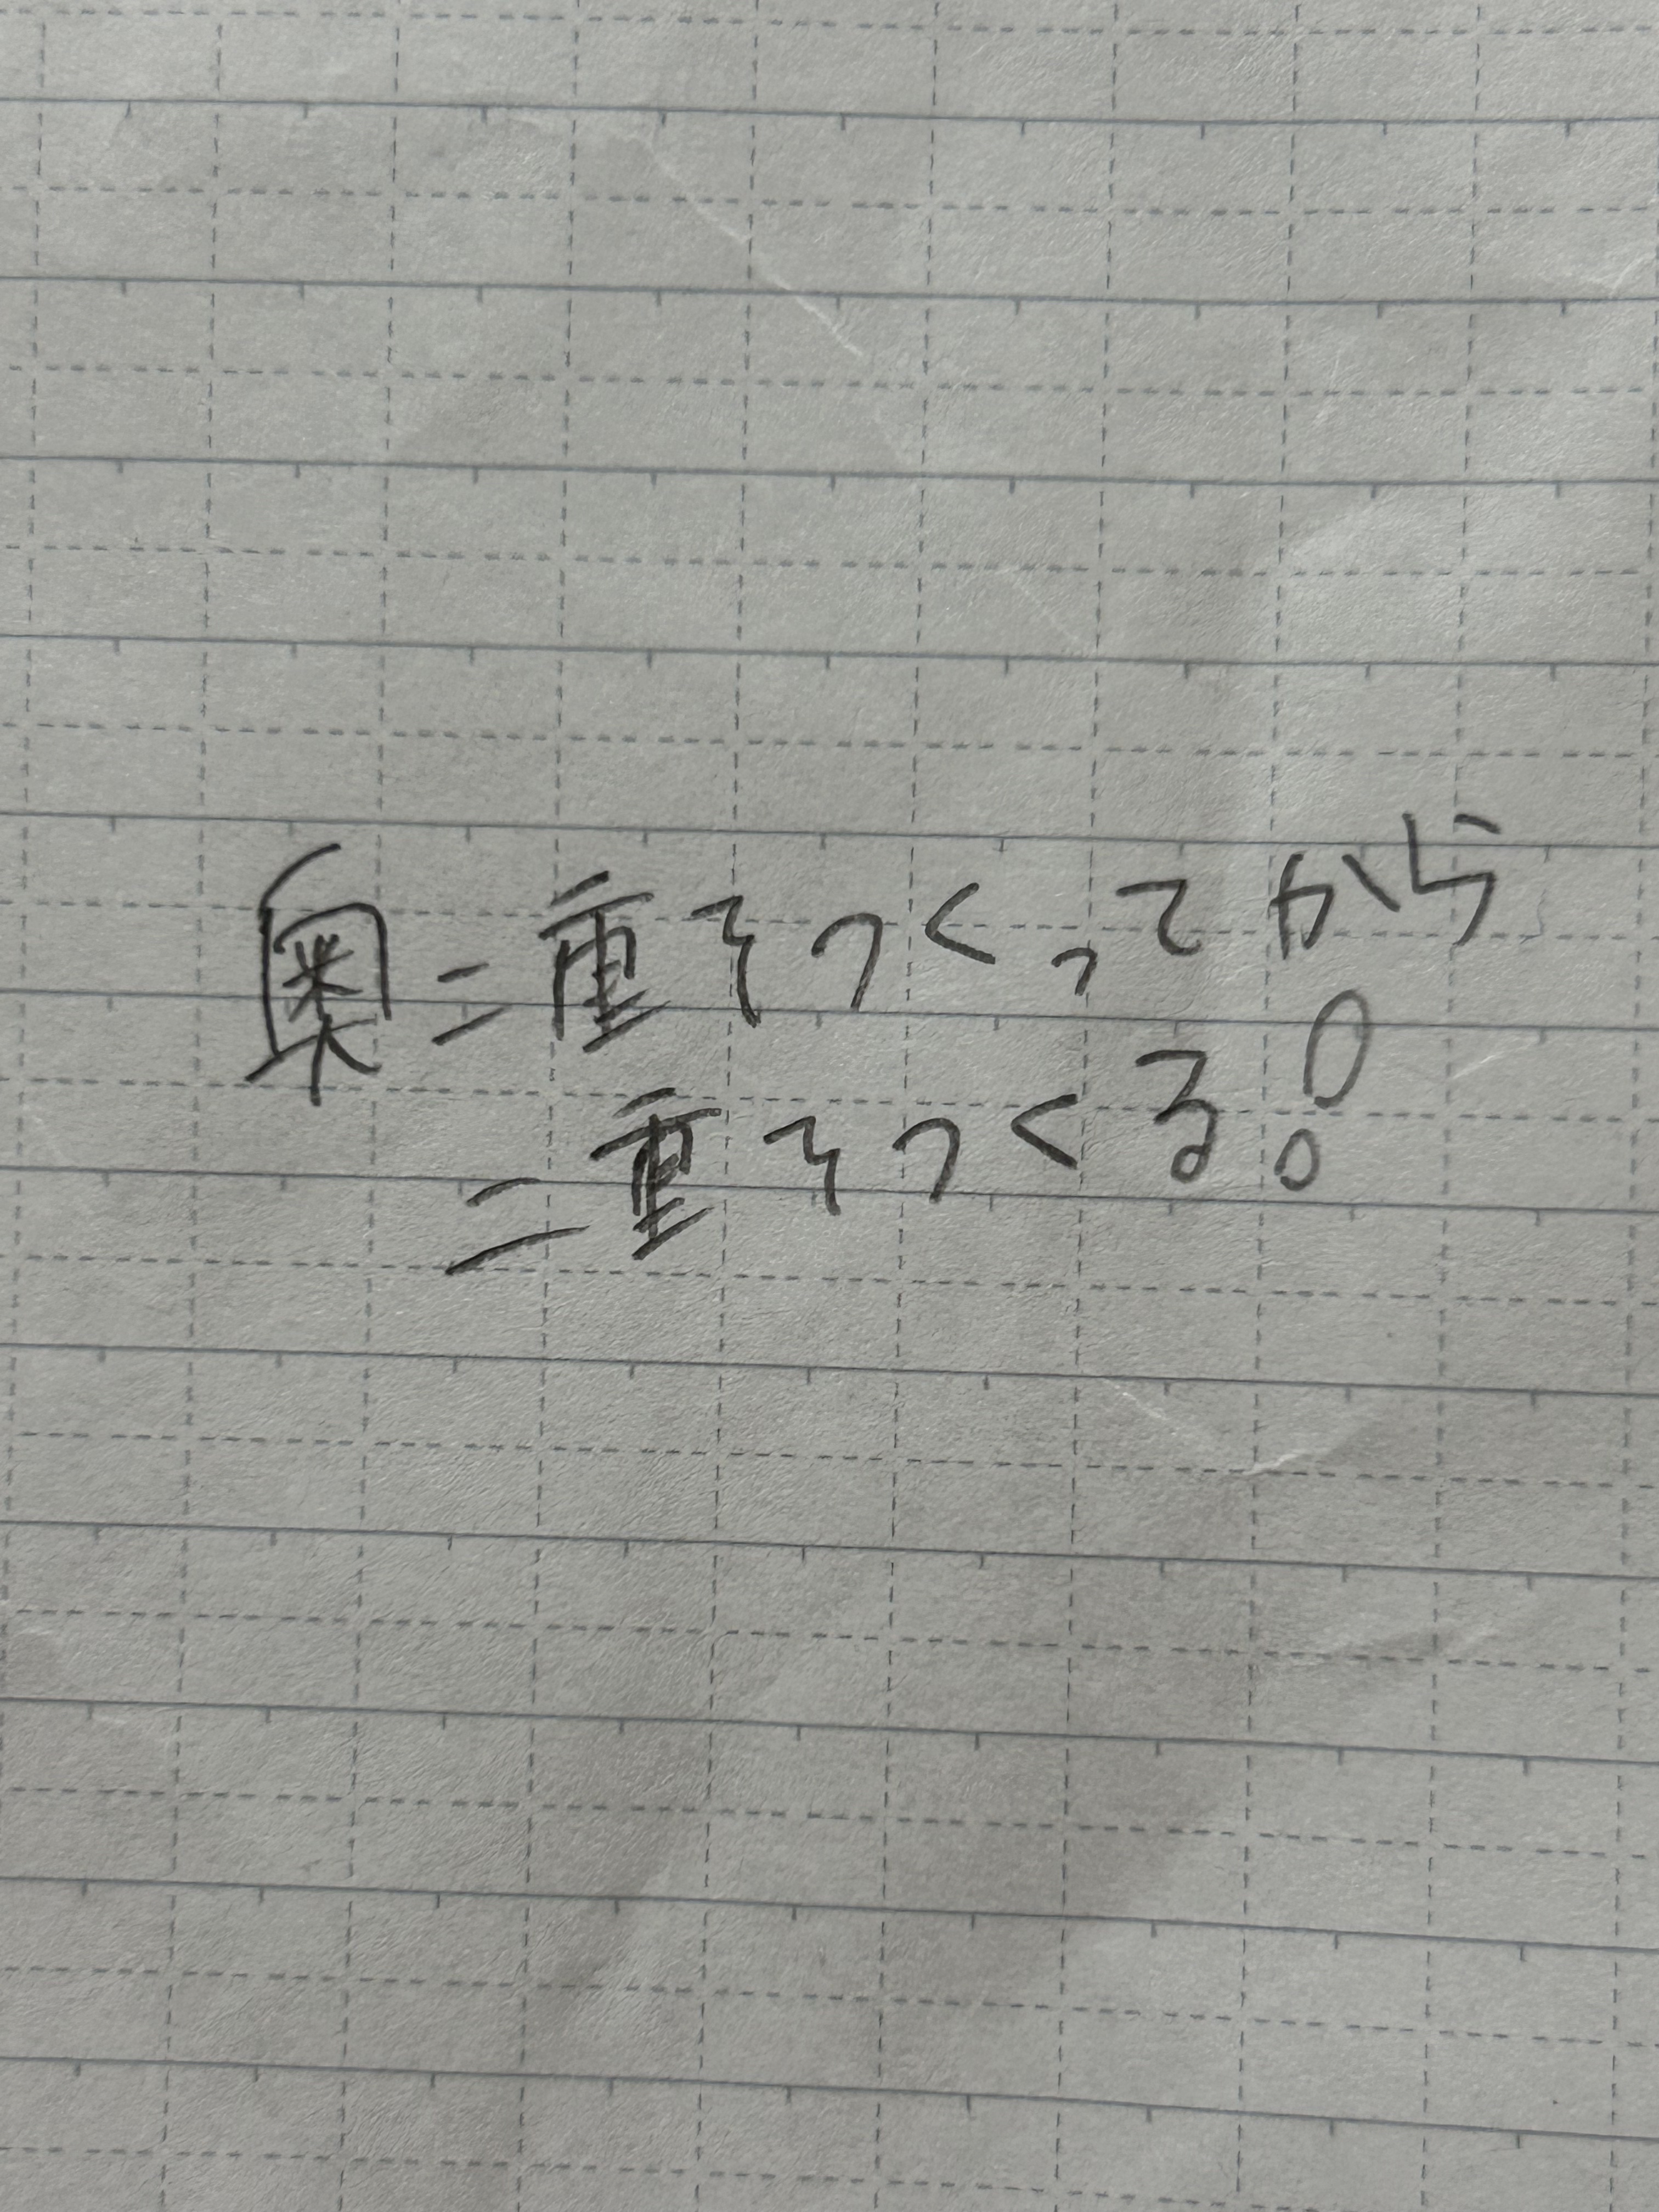 奥二重をつくってから
二重をつくる!